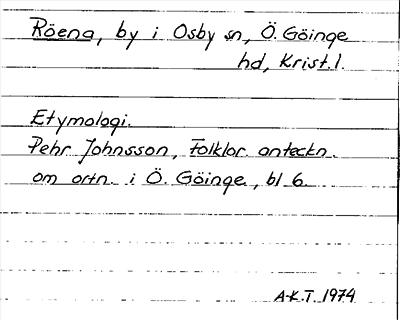 Röena, by i Osby sn, Ö. Göinge
hd, Krist. l.
Etymologi.
Pehr Johnsson, Folklor. anteckn.
om ortn. i Ö. Göinge, bl 6.
A-K.T. 1974